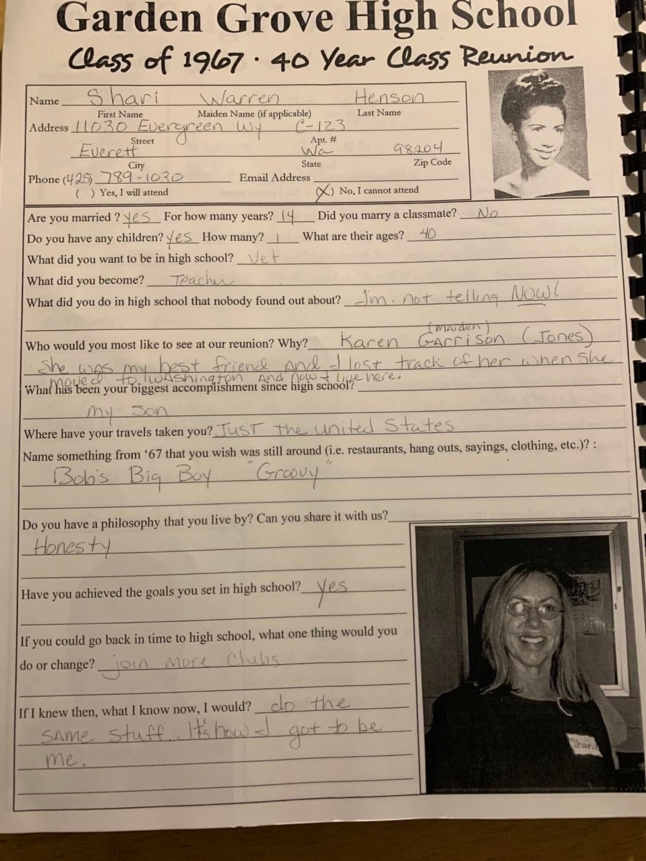 Garden Grove High School
Class of 1967 · 40 Year Class Reunion
Name Shari Warren Henson
First Name Maiden Name (if applicable) Last Name
Address 11030 Evergreen Wy C-123
Street Apt. #
Everett Wa 98204
City State Zip Code
Phone (425) 789-1030 Email Address
( ) Yes, I will attend (X) No, I cannot attend
Are you married ? yes For how many years? 14 Did you marry a classmate? No
Do you have any children? yes How many? 1 What are their ages? 40
What did you want to be in high school? Vet
What did you become? Teacher
What did you do in high school that nobody found out about? I'm not telling NOW!
Who would you most like to see at our reunion? Why? Karen Garrison (maiden) (Jones)
She was my best friend and I lost track of her when she
moved to Washington and now I live here.
What has been your biggest accomplishment since high school?
my son
Where have your travels taken you? Just the united States
Name something from '67 that you wish was still around (i.e. restaurants, hang outs, sayings, clothing, etc.)? :
Bob's Big Boy "Groovy"
Do you have a philosophy that you live by? Can you share it with us?
Honesty
Have you achieved the goals you set in high school? yes
If you could go back in time to high school, what one thing would you
do or change? join more clubs
If I knew then, what I know now, I would? do the
same stuff. It's how I got to be
me.
Shari